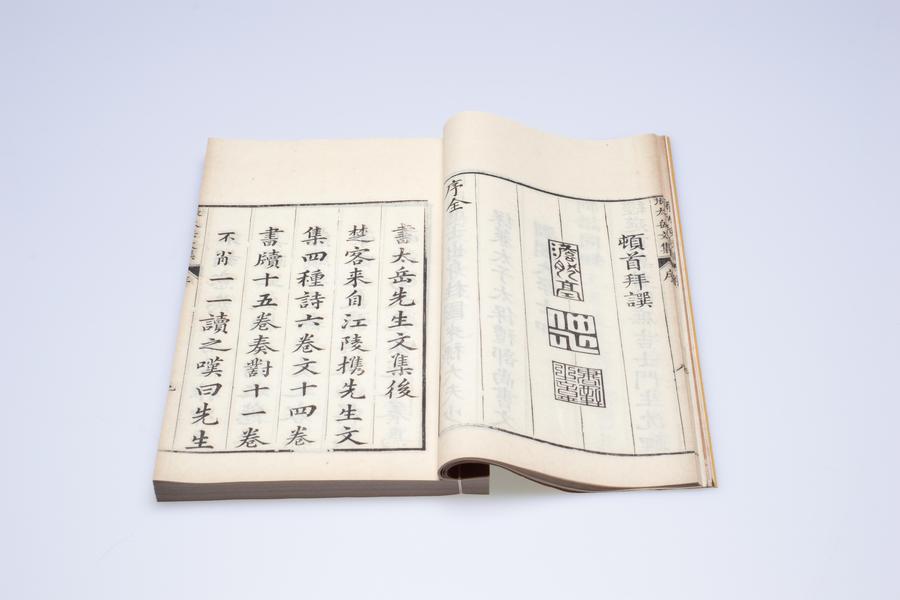 頓首拜譔
序全
書太岳先生文集後
楚客来自江陵攜先生文
集四種詩六卷文十四卷
書牘十五卷奏對十一卷
不肖一一讀之嘆曰先生